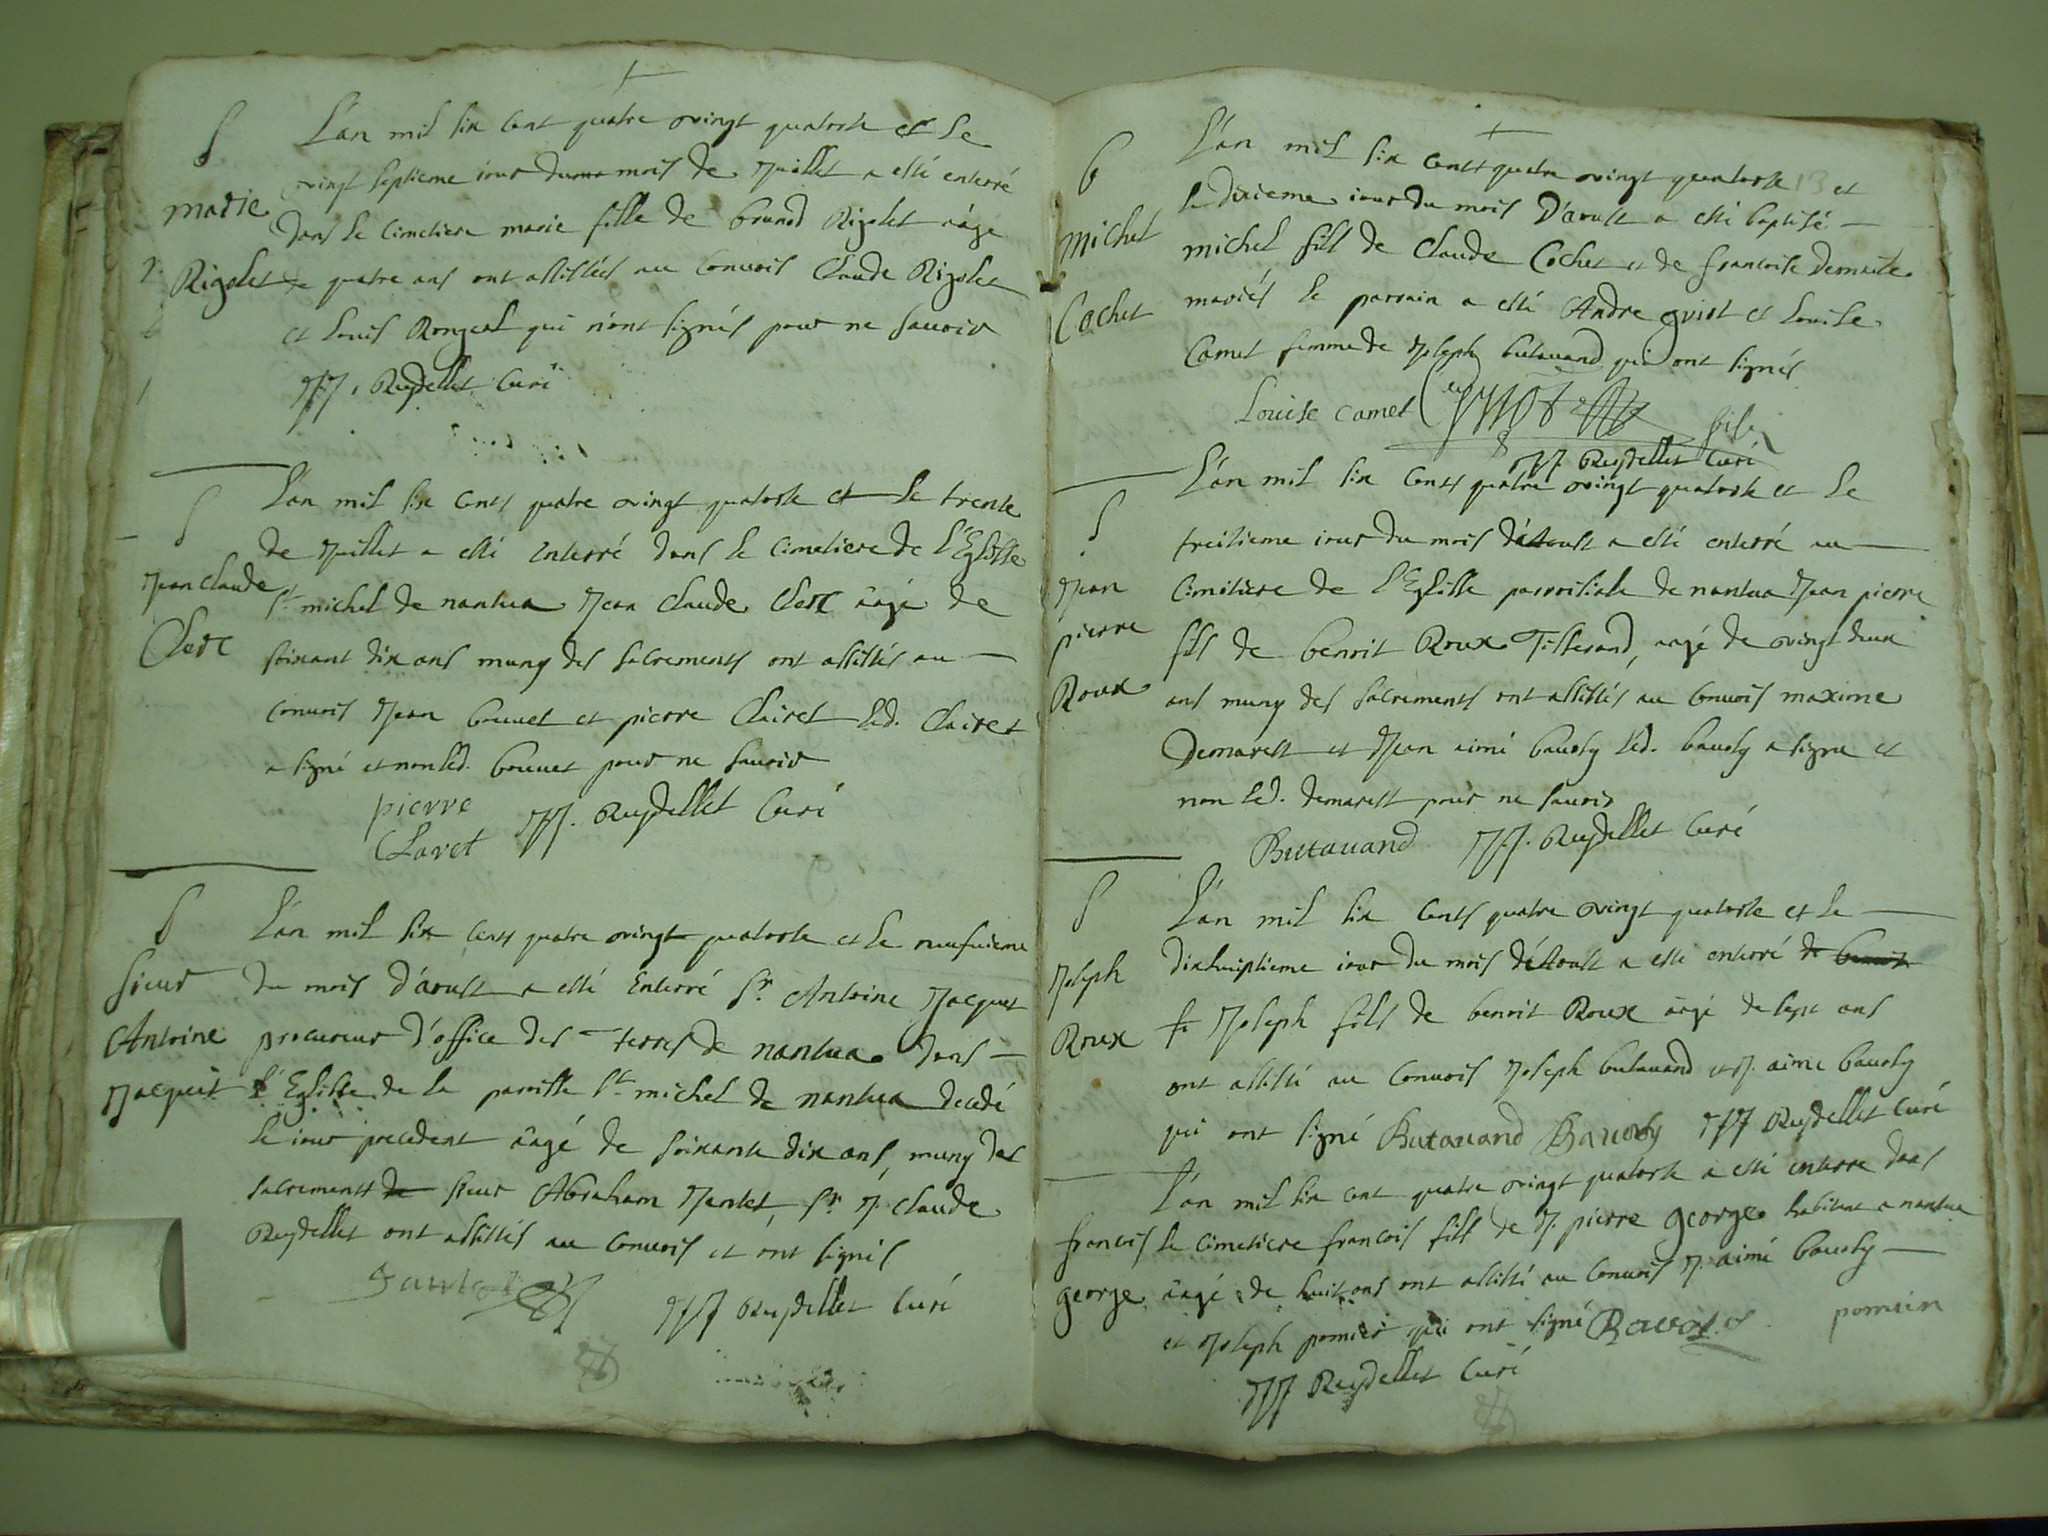 S
Marie
Rigolet
L'an mil six cent quatre vingt quatorse et le
vingt septieme iour du mois de Juillet a esté enterré
dans le cimetiere marie fille de Rigolet aagé
de quatre ans ont assistées au convois Claude Rigolet
et Louis qui n'ont signés pour ne scavoir
Reydellet Curé
S
Jean Claude
Clerc
L'an mil six cents quatre vingt quatorse et le trente
de Juillet a esté Enterré dans le cimetiere de l'Eglisse
St michel de nantua Jean Claude Clerc aagé de
soixant dix ans muny des sacrements ont assistés au
convois Jean bouuet et pierre Clairet led. Clairet
a signé et non led. bouuet pour ne scavoir
pierre
Claret
Reydellet Curé
S
sieur
Antoine
Jacquet
L'an mil six cents quatre vingt quatorse et le neufuieme
du mois d'aoust a esté Enterré Sr. Antoine Jacquet
procureur d'office des terres de nantua dans
l'Eglisse de la paroisse St michel de nantua decedé
le iour precedent aagé de soixante dix ans, muny des
sacrements de sieur Abraham Jantet, Sr. J. claude
Reydellet ont assistés au convois et ont signés
Jantet
Reydellet Curé
b
Michel
Cochet
L'an mil six cents quatre vingt quatorse 13 et
le dixieme iour du mois D'aoust a esté baptisé
michel fils de Claude Cochet et de francoise
mariés le parrain a esté Andre guiot et Louise
Camet femme de Joseph butauand qui ont signés
Louise camet
Reydellet Curé
S
Jean
pierre
Roux
L'an mil six cents quatre vingt quatorse et le
treisieme iour du mois d'Aoust a esté enterré au
Cimitiere de l'Eglisse parroisiale de nantua Jean pierre
fils de benoit Roux Tisserand, aagé de vingt deux
ans muny des sacrements ont assistés au convois maxime
Demarest et Jean aimé bauoly led. bauoly a signe et
non led. demarest pour ne scavoir
Butauand Reydellet Curé
S
Joseph
Roux
L'an mil six cents quatre vingt quatorse et le
dixhuiptieme iour du mois d'Aoust a esté enterré de benoit
Joseph fils de benoit Roux aagé de sept ans
ont assisté au convois Joseph butauand et J. aime bauoly
qui ont signé Butauand Bauoly Reydellet Curé
francois
george
L'an mil six cent quatre vingt quatorse a esté enterre dans
le cimetiere francois fils de J. pierre george habitant a nantua
aagé de huit ans ont assisté au convois J. aimé bauoly
et Joseph pomier qui ont signé
Reydellet Curé